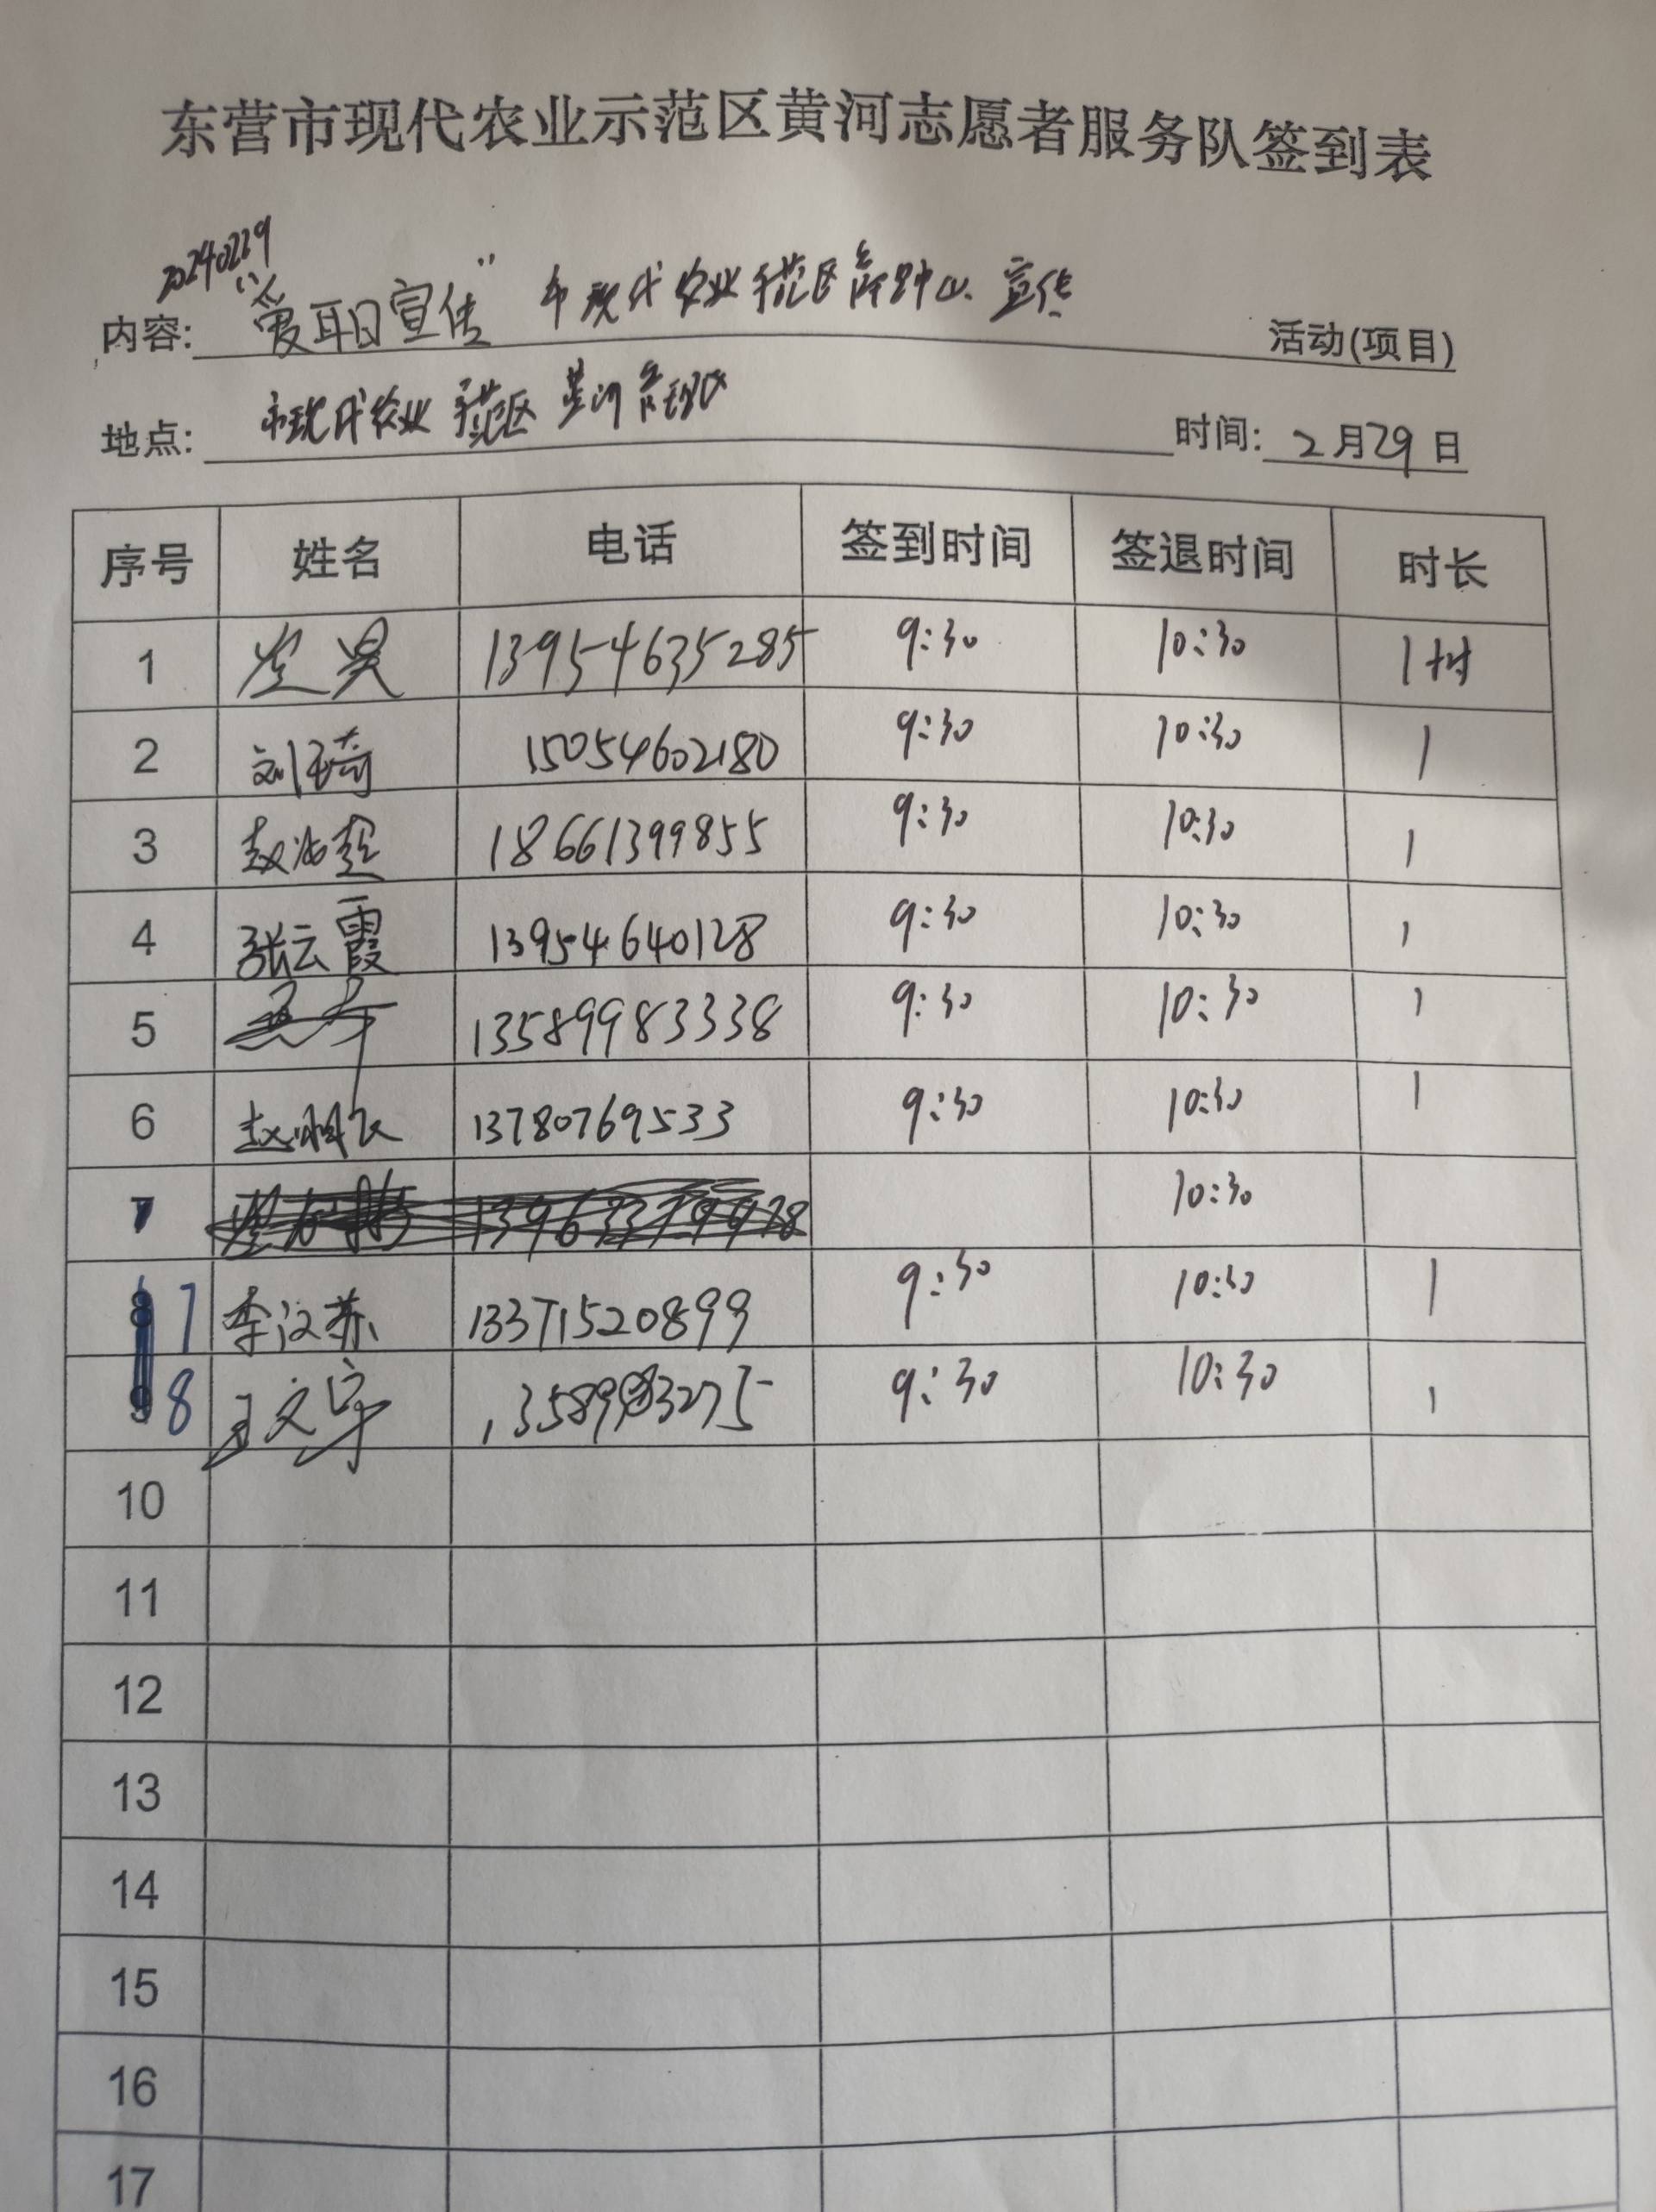 东营市现代农业示范区黄河志愿者服务队签到表
20240229
内容: "爱耳日宣传" 市现代农业示范区 宣传 活动(项目)
地点: 市现代农业示范区黄河 时间: 2月29日
序号 姓名 电话 签到时间 签退时间 时长
1 昊 13954635285 9:30 10:30 1时
2 刘琦 15054602180 9:30 10:30 1
3 赵 超 18661399855 9:30 10:30 1
4 张云霞 13954640128 9:30 10:30 1
5 13589983338 9:30 10:30 1
6 赵 13780769533 9:30 10:30 1
7 10:30
8 7 李汶燕 13371520899 9:30 10:30 1
9 8 王文宇 9:30 10:30 1
10
11
12
13
14
15
16
17